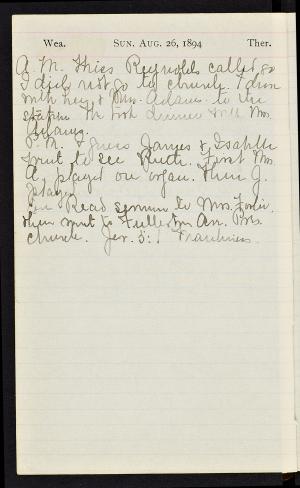 Wea. SUN. AUG. 26, 1894 Ther.
A.M. Miss Reynolds called so
I did not go to church. I drove
with her & Mrs. Adams to the
station. We took dinner with Mrs.
P.M. Agnes James & Isabelle
went to see Ruth. First Mrs
A. played on organ. Then J.
played
Eve Read sermon to Mrs.
then went to Fullerton Ave. Pres
church. Jer. 5:1